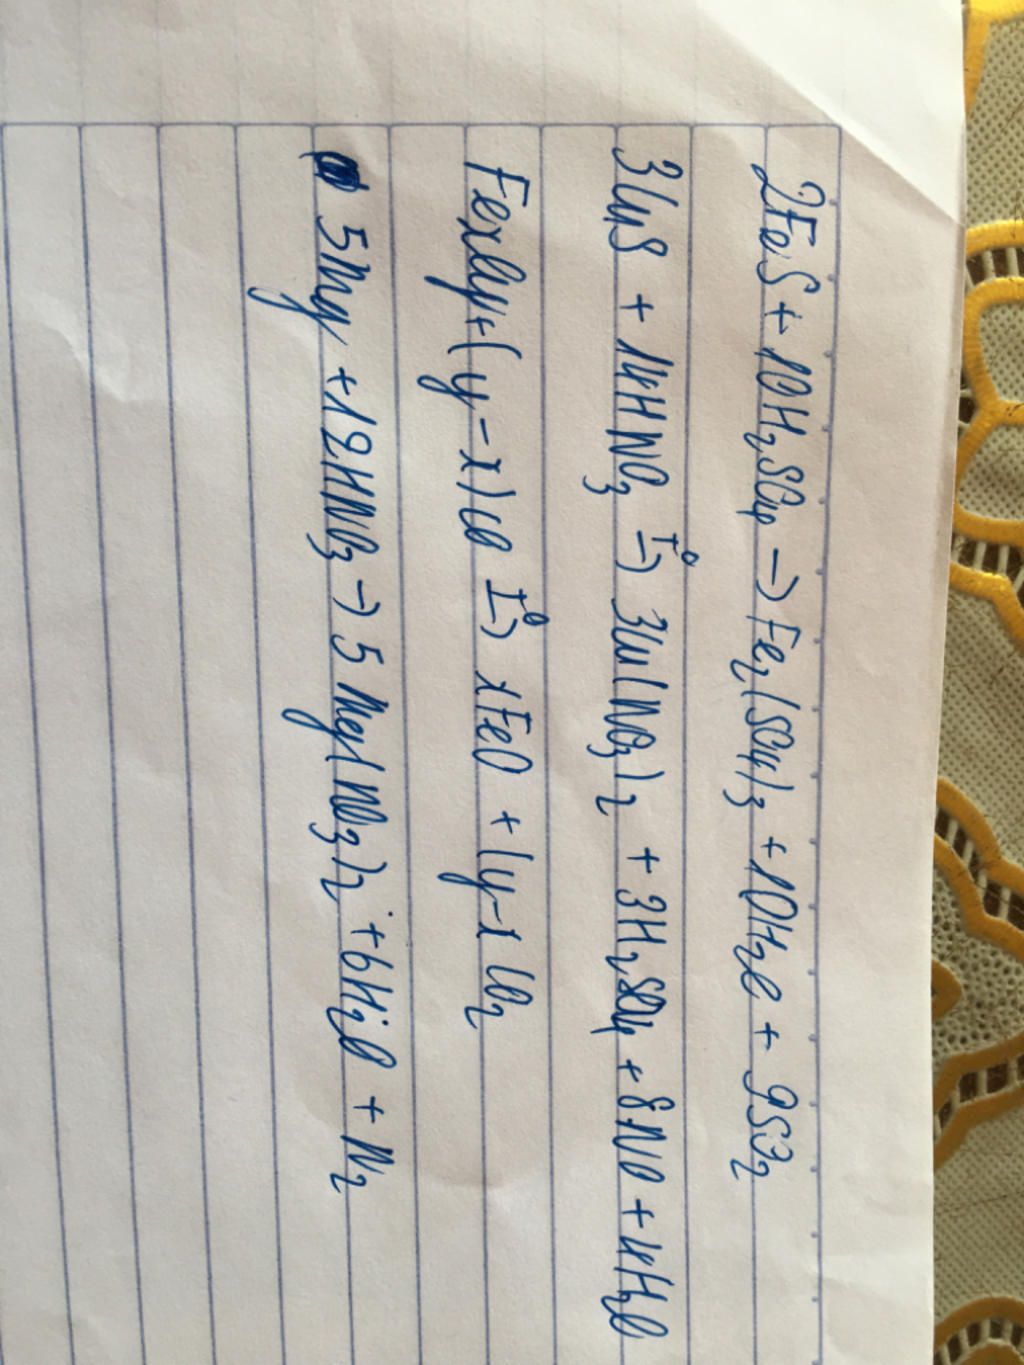 2FeS + 10H₂SO₄ → Fe₂(SO₄)₃ + 10H₂O + 9SO₂
3CuS + 14HNO₃ T⁰→ 3Cu(NO₃)₂ + 3H₂SO₄ + 8NO + 4H₂O
FexOy + (y-x)CO T⁰→ xFeO + (y-x CO₂
5Mg + 12HNO₃ → 5Mg(NO₃)₂ + 6H₂O + N₂